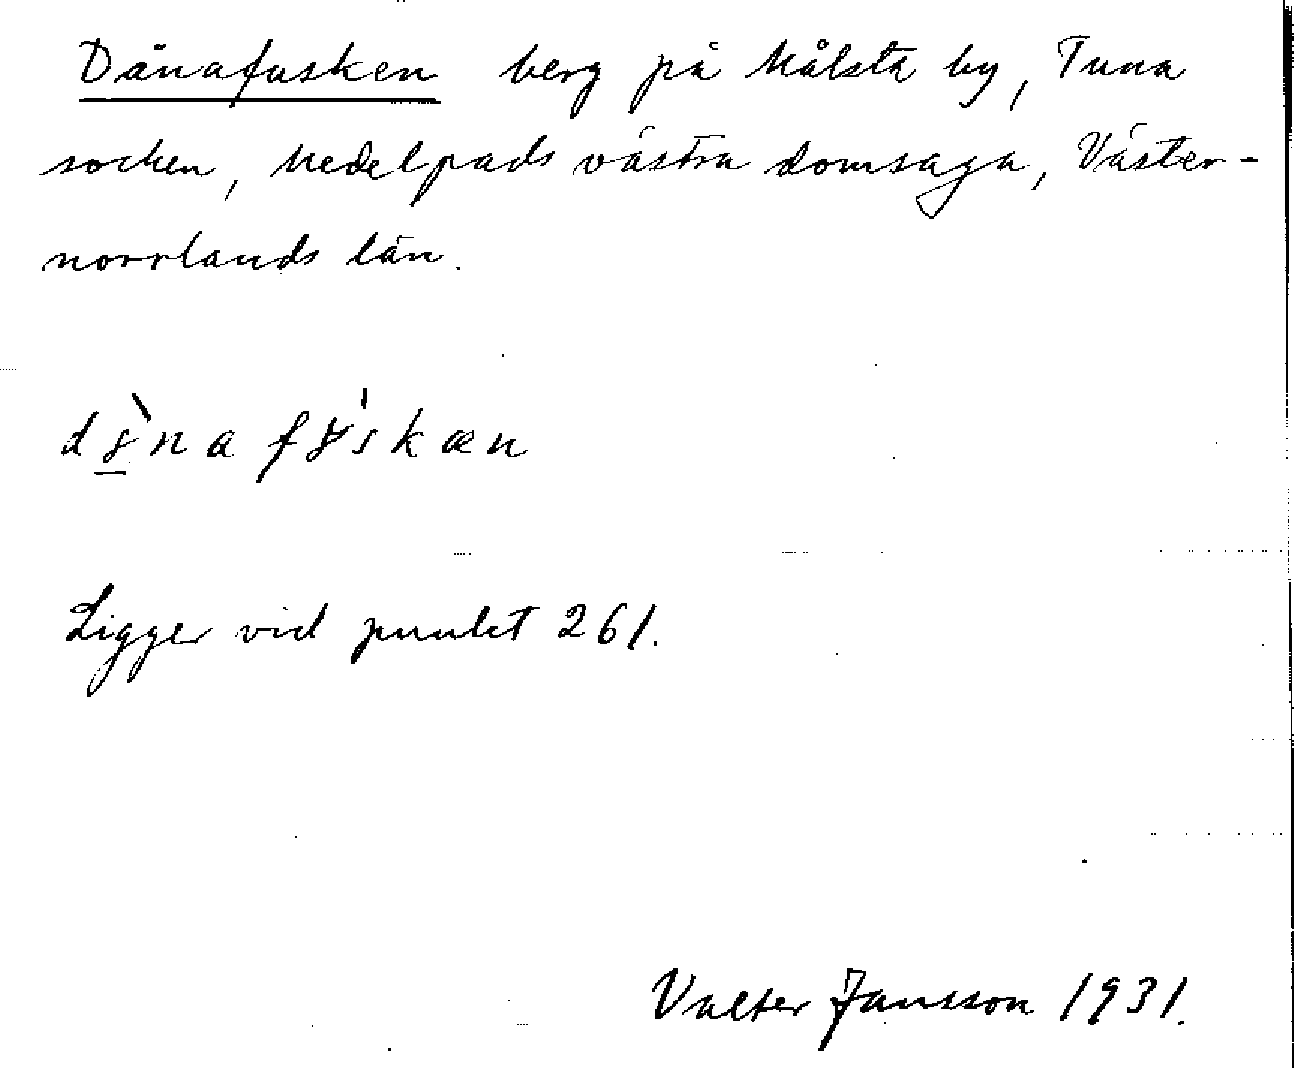 Dänafusken berg på Målsta by, Tuna
socken, Medelpads västra domsaga, Väster-
norrlands län.
Ligger vid punkt 261.
Valter Jansson 1931.